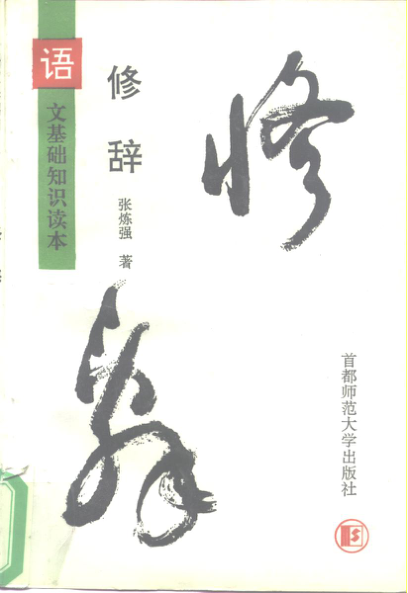 语文基础知识读本
修辞
张炼强 著
修
辞
首都师范大学出版社